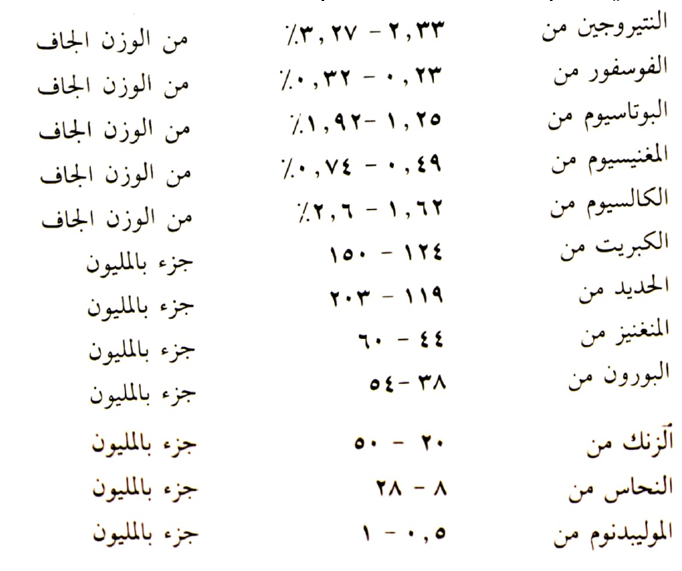 النتيروجين من ٢,٣٣ - ٣,٢٧٪ من الوزن الجاف
الفوسفور من ٠,٢٣ - ٠,٣٢٪ من الوزن الجاف
البوتاسيوم من ١,٢٥ - ١,٩٢٪ من الوزن الجاف
المغنيسيوم من ٠,٤٩ - ٠,٧٤٪ من الوزن الجاف
الكالسيوم من ١,٦٢ - ٢,٦٪ من الوزن الجاف
الكبريت من ١٢٤ - ١٥٠ جزء بالمليون
الحديد من ١١٩ - ٢٠٣ جزء بالمليون
المنغنيز من ٤٤ - ٦٠ جزء بالمليون
البورون من ٣٨ - ٥٤ جزء بالمليون
الزنك من ٢٠ - ٥٠ جزء بالمليون
النحاس من ٨ - ٢٨ جزء بالمليون
الموليبدنوم من ٠,٥ - ١ جزء بالمليون